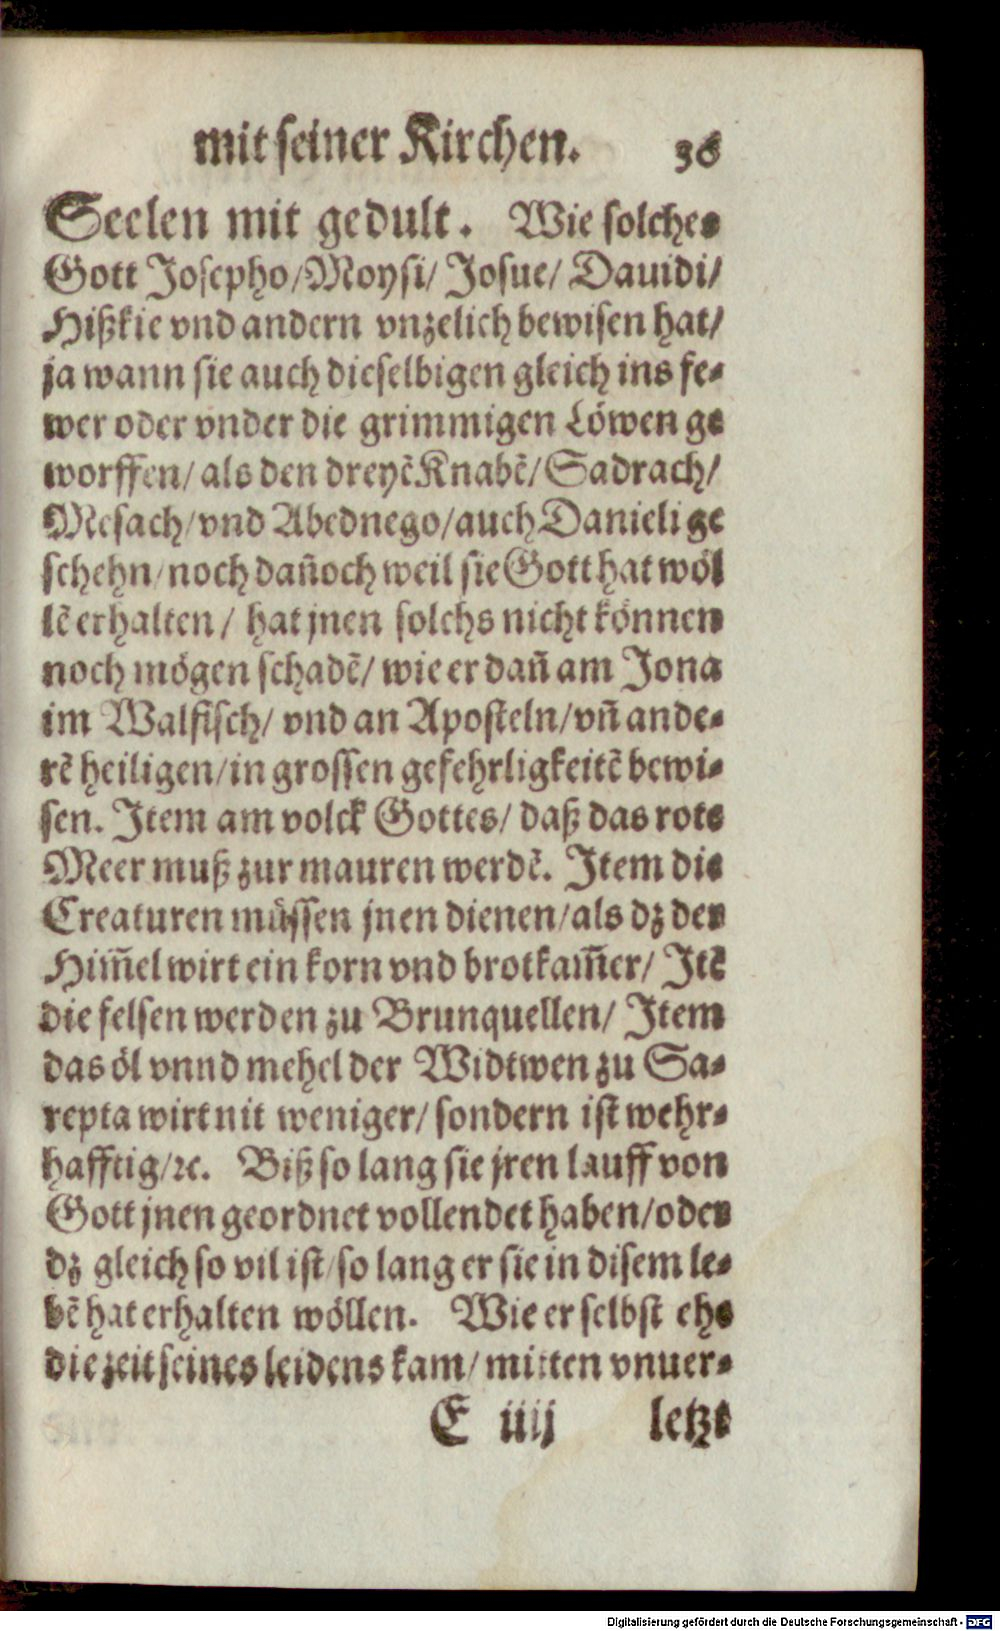 mit seiner Kirchen. 36
Seelen mit gedult. Wie solches
Gott Josepho/Moysi/ Josue/ Dauidi/
Hißkie vnd andern vnzelich bewisen hat/
ja wann sie auch dieselbigen gleich ins fe-
wer oder vnder die grimmigen Löwen ge
worffen/ als den dreyẽ Knabẽ/ Sadrach/
Mesach/vnd Abednego/auch Danieli ge
schehn/noch dañoch weil sie Gott hat wöl
lẽ erhalten/ hat jnen solchs nicht können
noch mögen schadẽ/ wie er dañ am Jona
im Walfisch/ vnd an Aposteln/vñ ande-
rẽ heiligen/in grossen gefehrligkeitẽ bewi-
sen. Item am volck Gottes/ daß das rote
Meer muß zur mauren werdẽ. Item die
Creaturen müssen jnen dienen/als dz der
Him̃el wirt ein korn vnd brotkam̃er/ Itẽ
die felsen werden zu Brunquellen/ Item
das öl vnnd mehel der Widtwen zu Sa-
repta wirt nit weniger/ sondern ist wehr-
hafftig/ꝛc. Biß so lang sie jren lauff von
Gott jnen geordnet vollendet haben/oder
dz gleich so vil ist/so lang er sie in disem le-
bẽ hat erhalten wöllen. Wie er selbst ehe
die zeit seines leidens kam/ mitten vnuer-
E iiij letzt
Digitalisierung gefördert durch die Deutsche Forschungsgemeinschaft - DFG